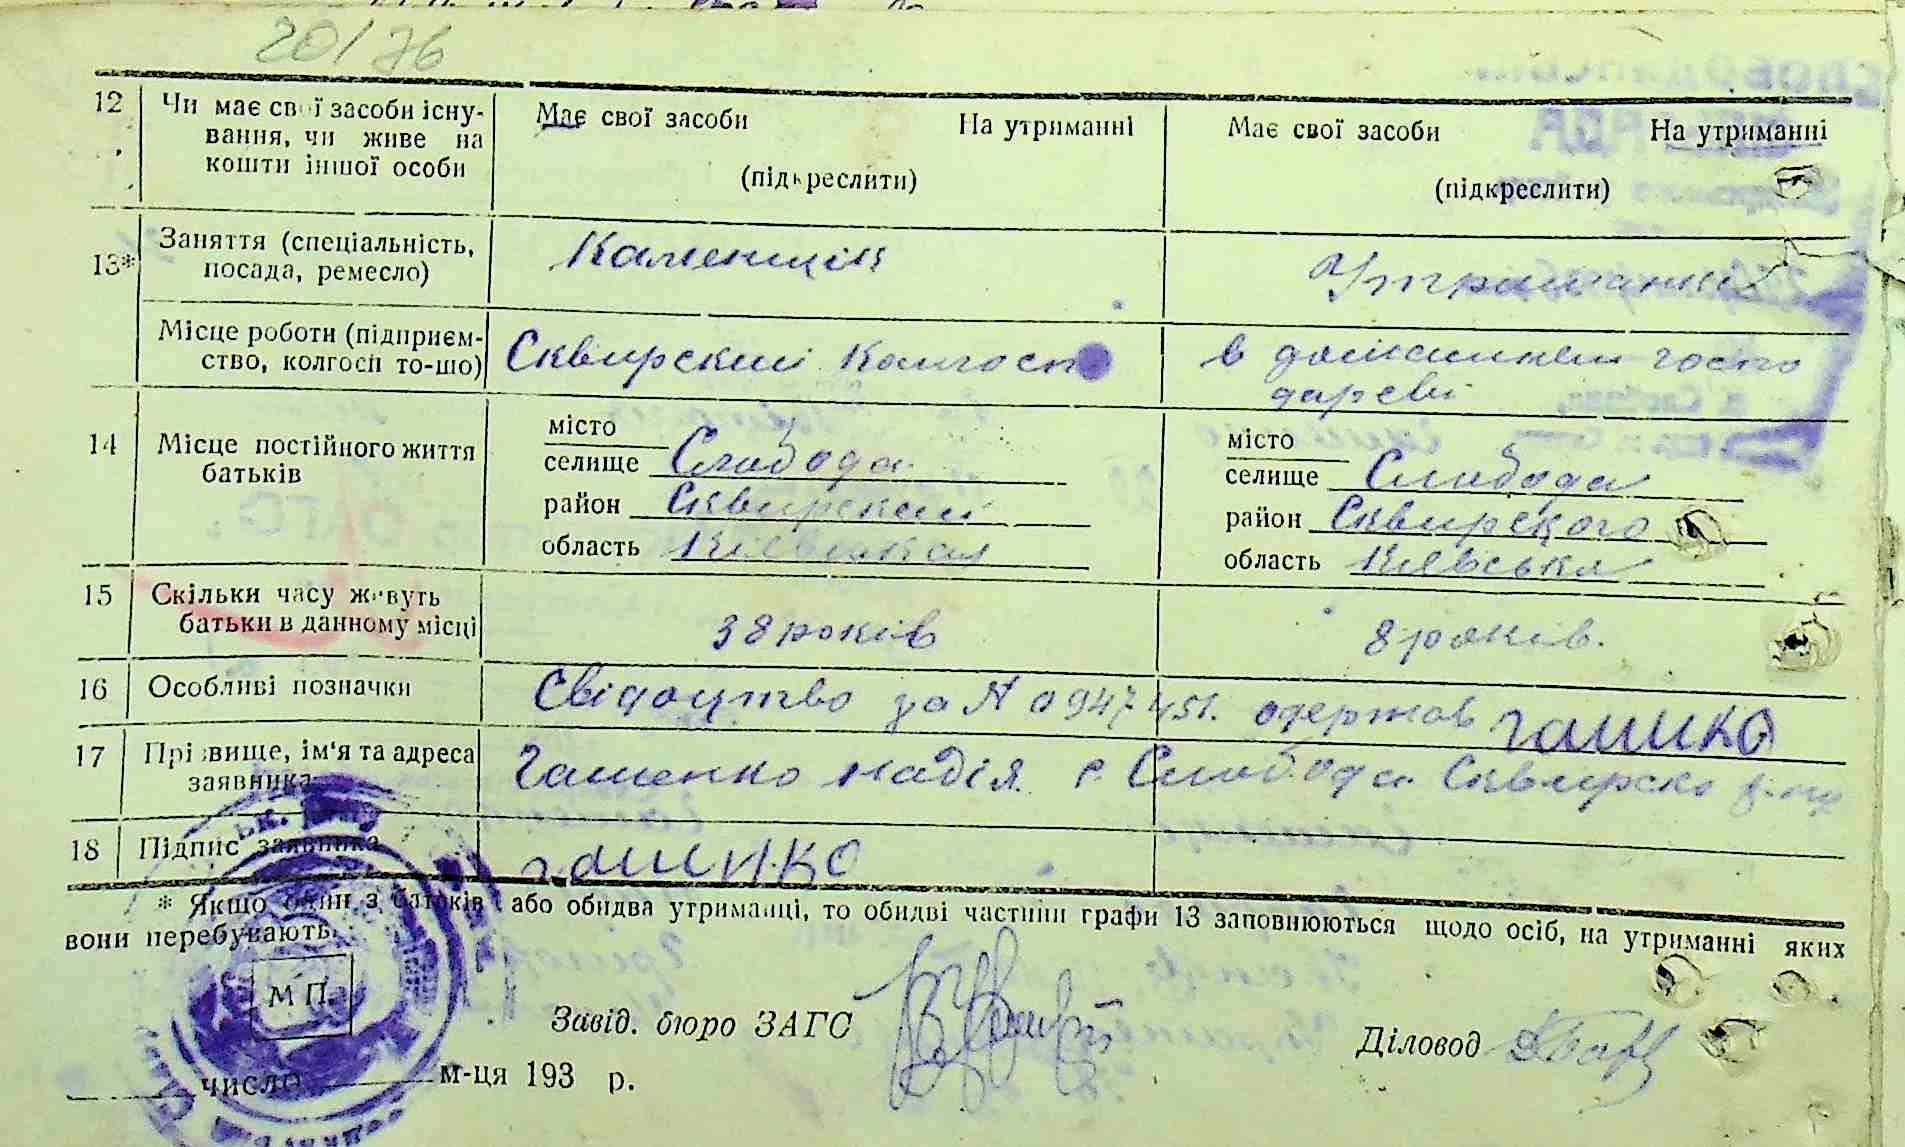 20/76
12 Чи має свої засоби існу- Має свої засоби На утриманні Має свої засоби На утриманні
вання, чи живе на
кошти іншої особи (підкреслити) (підкреслити)
13* Заняття (спеціальність, Каменщик Утриманка
посада, ремесло)
Місце роботи (підприєм- Сквирский колгосп в домашнем госпо
ство, колгосп то-що) дарстві
14 Місце постійного життя місто місто
батьків селище Слобода селище Слобода
район Сквирский район Сквирского
область Київская область Київська
15 Скільки часу живуть 38 років 8 років.
батьки в данному місці
16 Особливі позначки Свідоцтво за № 0947451. одержав гашико
17 Прізвище, ім'я та адреса Гашенко Надія с. Слобода Сквирско
заявника
18 Підпис заявника гашико
* Якщо один з батьків або обидва утриманці, то обидві частини графи 13 заповнюються щодо осіб, на утриманні яких
вони перебувають.
М П.
Завід. бюро ЗАГС Діловод
число м-ця 193 р.